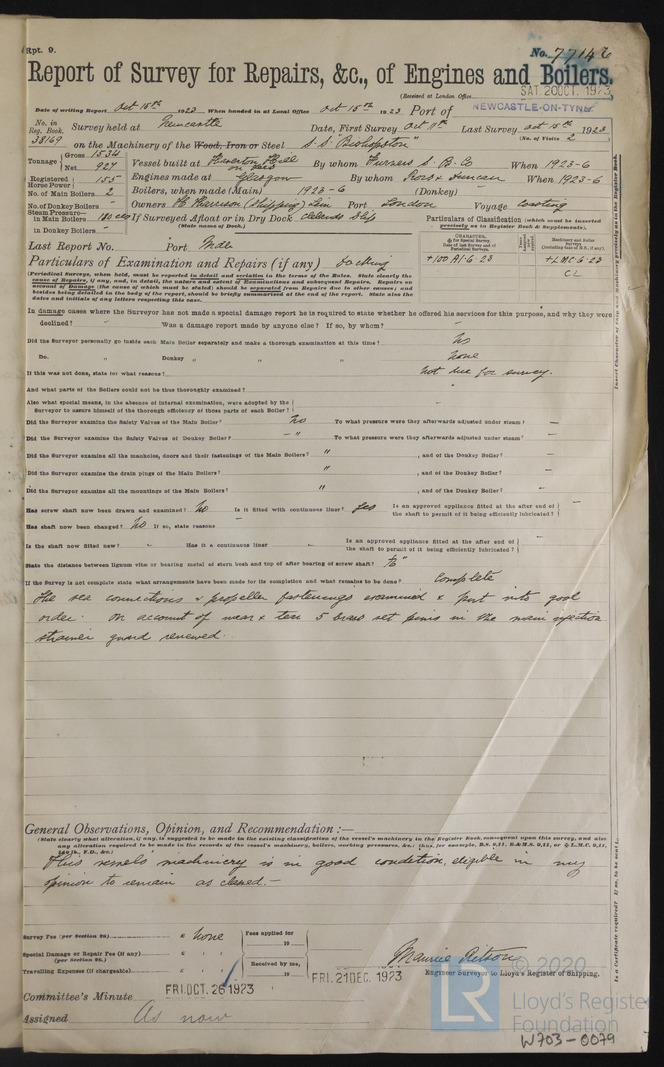 Rpt. 9.
No. 77146
Report of Survey for Repairs, &c., of Engines and Boilers.
(Received at London Office SAT. 20 OCT. 1923
Date of writing Report Oct 15th 1923 When handed in at Local Office Oct 15th 1923 Port of NEWCASTLE-ON-TYNE
No. in Reg. Book. 38169 Survey held at Newcastle Date, First Survey Oct 11th Last Survey Oct 15th 1923
(No. of Visits 2)
on the Machinery of the Wood, Iron or Steel S.S. "Bishopston"
Tonnage Gross 1534 Net 924 Vessel built at Haverton Hill on Tees By whom Furness S. B. Co When 1923-6
Registered Horse Power 155 Engines made at Glasgow By whom Ross & Duncan When 1923-6
No. of Main Boilers 2 Boilers, when made (Main) 1923-6 (Donkey) -
No. of Donkey Boilers - Owners Harrison (Shipping) Lim Port London Voyage Coasting
Steam Pressure— in Main Boilers 180 lbs If Surveyed Afloat or in Dry Dock
in Donkey Boilers - (State name of Dock.)
Particulars of Classification (which must be inserted precisely as in Register Book & Supplements).
Last Report No. Port
+100A1-6-23 +LMC-6-23
CL
Particulars of Examination and Repairs (if any) Docking
(Periodical Surveys, when held, must be reported in detail and seriatim in the terms of the Rules. State clearly the
cause of Repairs, if any, and, in detail, the nature and extent of Examinations and subsequent Repairs. Repairs on
account of Damage (the cause of which must be stated) should be separated from Repairs due to other causes; and
besides being detailed in the body of the report, should be briefly summarised at the end of the report. State also the
dates and initials of any letters respecting this case.
In damage cases where the Surveyor has not made a special damage report he is required to state whether he offered his services for this purpose, and why they were
declined? - Was a damage report made by anyone else? If so, by whom? -
Did the Surveyor personally go inside each Main Boiler separately and make a thorough examination at this time? No
Do. " Donkey " " " None
If this was not done, state for what reasons? Not due for survey.
And what parts of the Boilers could not be thus thoroughly examined? -
Also what special means, in the absence of internal examination, were adopted by the
Surveyor to assure himself of the thorough efficiency of those parts of each Boiler? -
Did the Surveyor examine the Safety Valves of the Main Boiler? No To what pressure were they afterwards adjusted under steam? -
Did the Surveyor examine the Safety Valves of Donkey Boiler? - " To what pressure were they afterwards adjusted under steam? -
Did the Surveyor examine all the manholes, doors and their fastenings of the Main Boilers? " , and of the Donkey Boiler? -
Did the Surveyor examine the drain plugs of the Main Boilers? " , and of the Donkey Boiler? -
Did the Surveyor examine all the mountings of the Main Boilers? " , and of the Donkey Boiler? -
Has screw shaft now been drawn and examined? No Is it fitted with continuous liner? Yes Is an approved appliance fitted at the after end of
the shaft to permit of it being efficiently lubricated? -
Has shaft now been changed? No If so, state reasons -
Is the shaft now fitted new? - Has it a continuous liner - Is an approved appliance fitted at the after end of
the shaft to permit of it being efficiently lubricated? -
State the distance between lignum vitæ or bearing metal of stern bush and top of after bearing of screw shaft?
If the Survey is not complete state what arrangements have been made for its completion and what remains to be done? Complete
The sea connections & propeller fastenings examined & put into good
order. On account of wear & tear 5 brass set pins in the main injection
strainer guard renewed.
General Observations, Opinion, and Recommendation:—
(State clearly what alteration, if any, is suggested to be made in the existing classification of the vessel's machinery in the Register Book, consequent upon this survey, and also
any alteration required to be made in the records of the vessel's machinery, boilers, working pressures, &c.: thus, for example, B.S. 9,11, B.&M.S. 9,11, or
This vessels machinery is in good condition, eligible in my
opinion to remain as classed.-
Survey Fee (per Section 28) £ None Fees applied for
19
Special Damage or Repair Fee (if any) £
(per Section 28.)
Received by me,
Travelling Expenses (if chargeable) £ 19
Maurice Ritson
Engineer Surveyor to Lloyd's Register of Shipping.
FRI. 21 DEC. 1923
Committee's Minute FRI. OCT. 26 1923
Assigned As now
Insert Character of Ship and Machinery precisely as in the Register Book.
Is a Certificate required?
© 2020
LR Lloyd's Register
Foundation
W703-0079